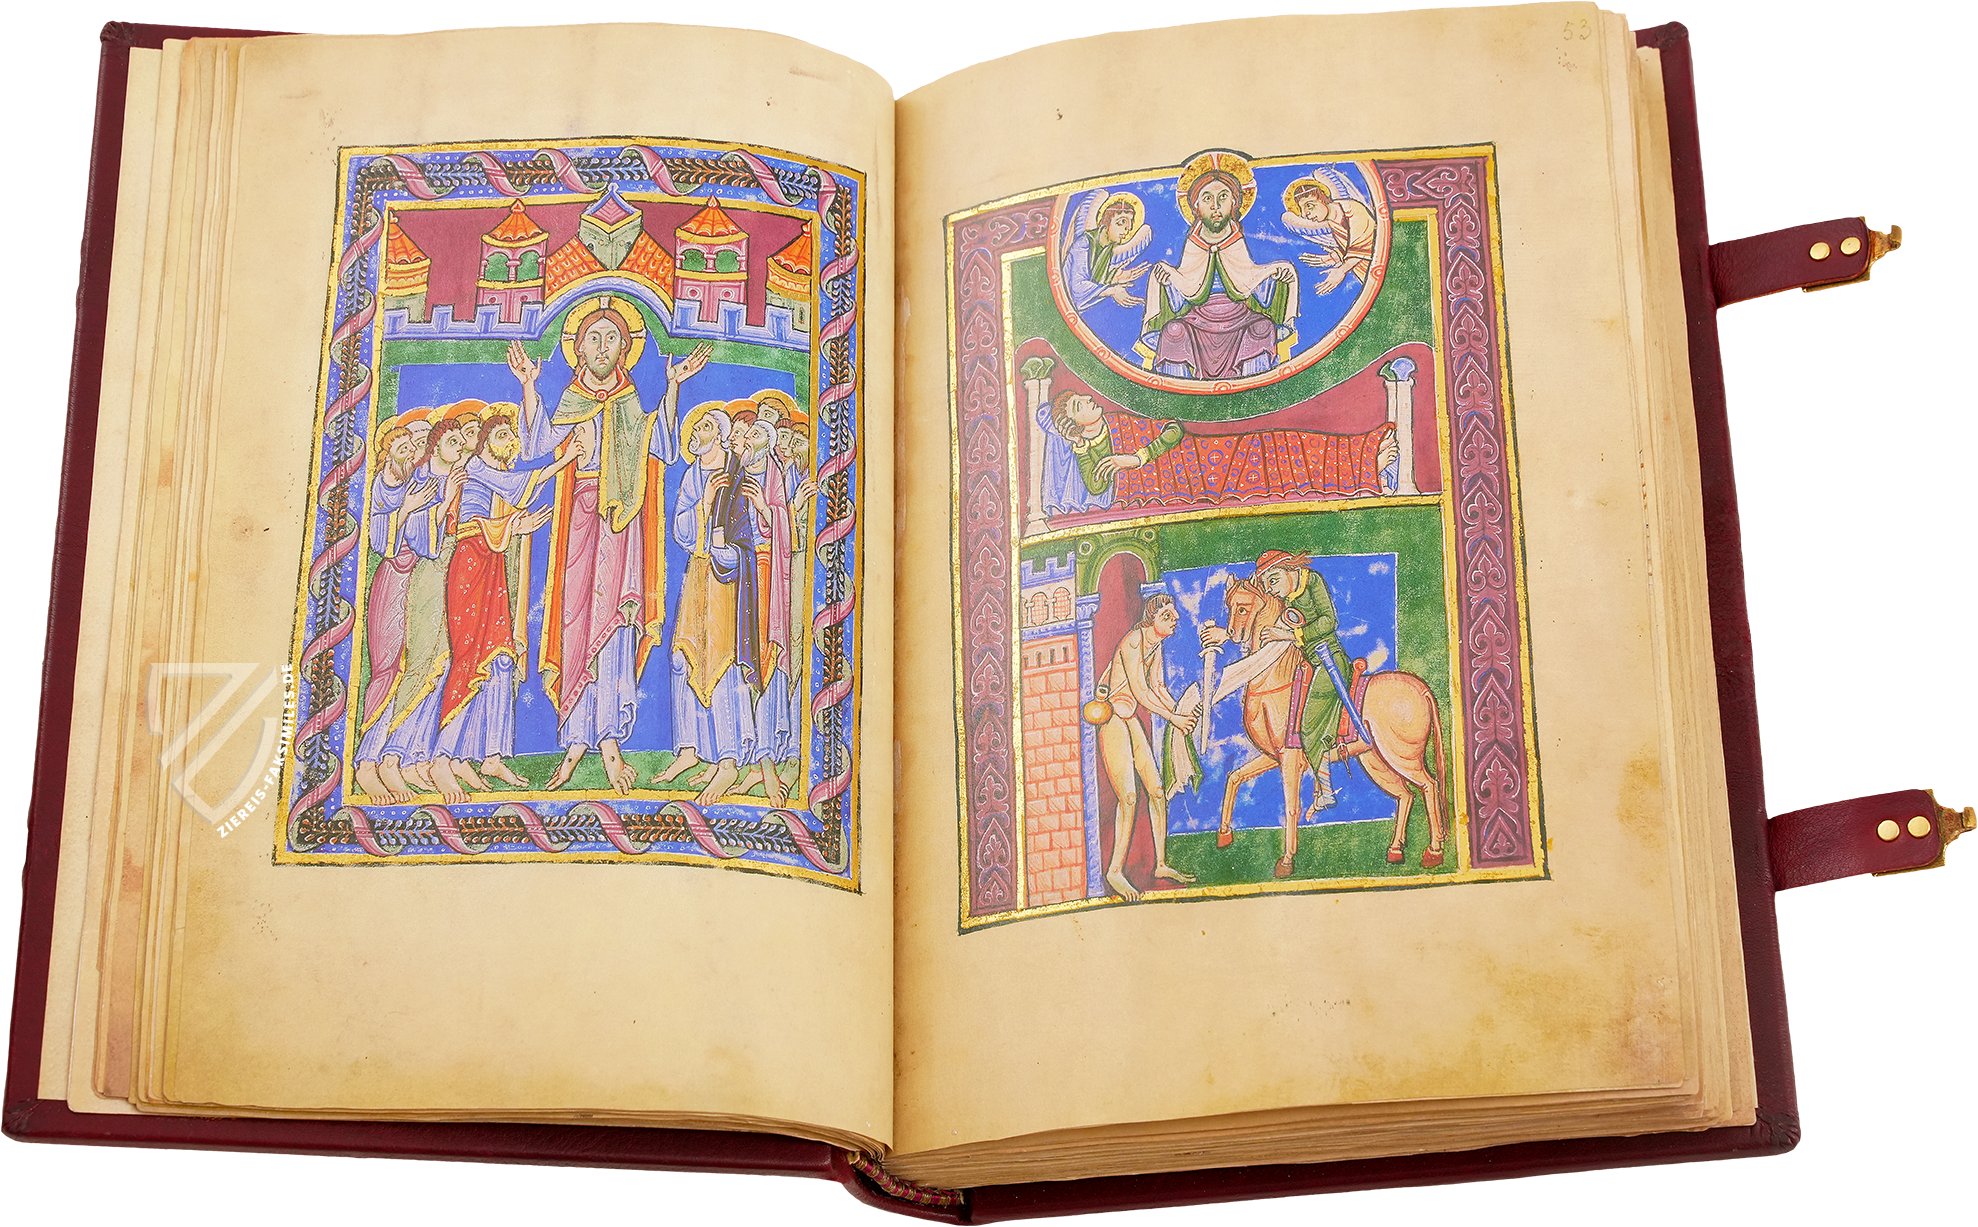 53
ZIEREIS-FAKSIMILES.DE